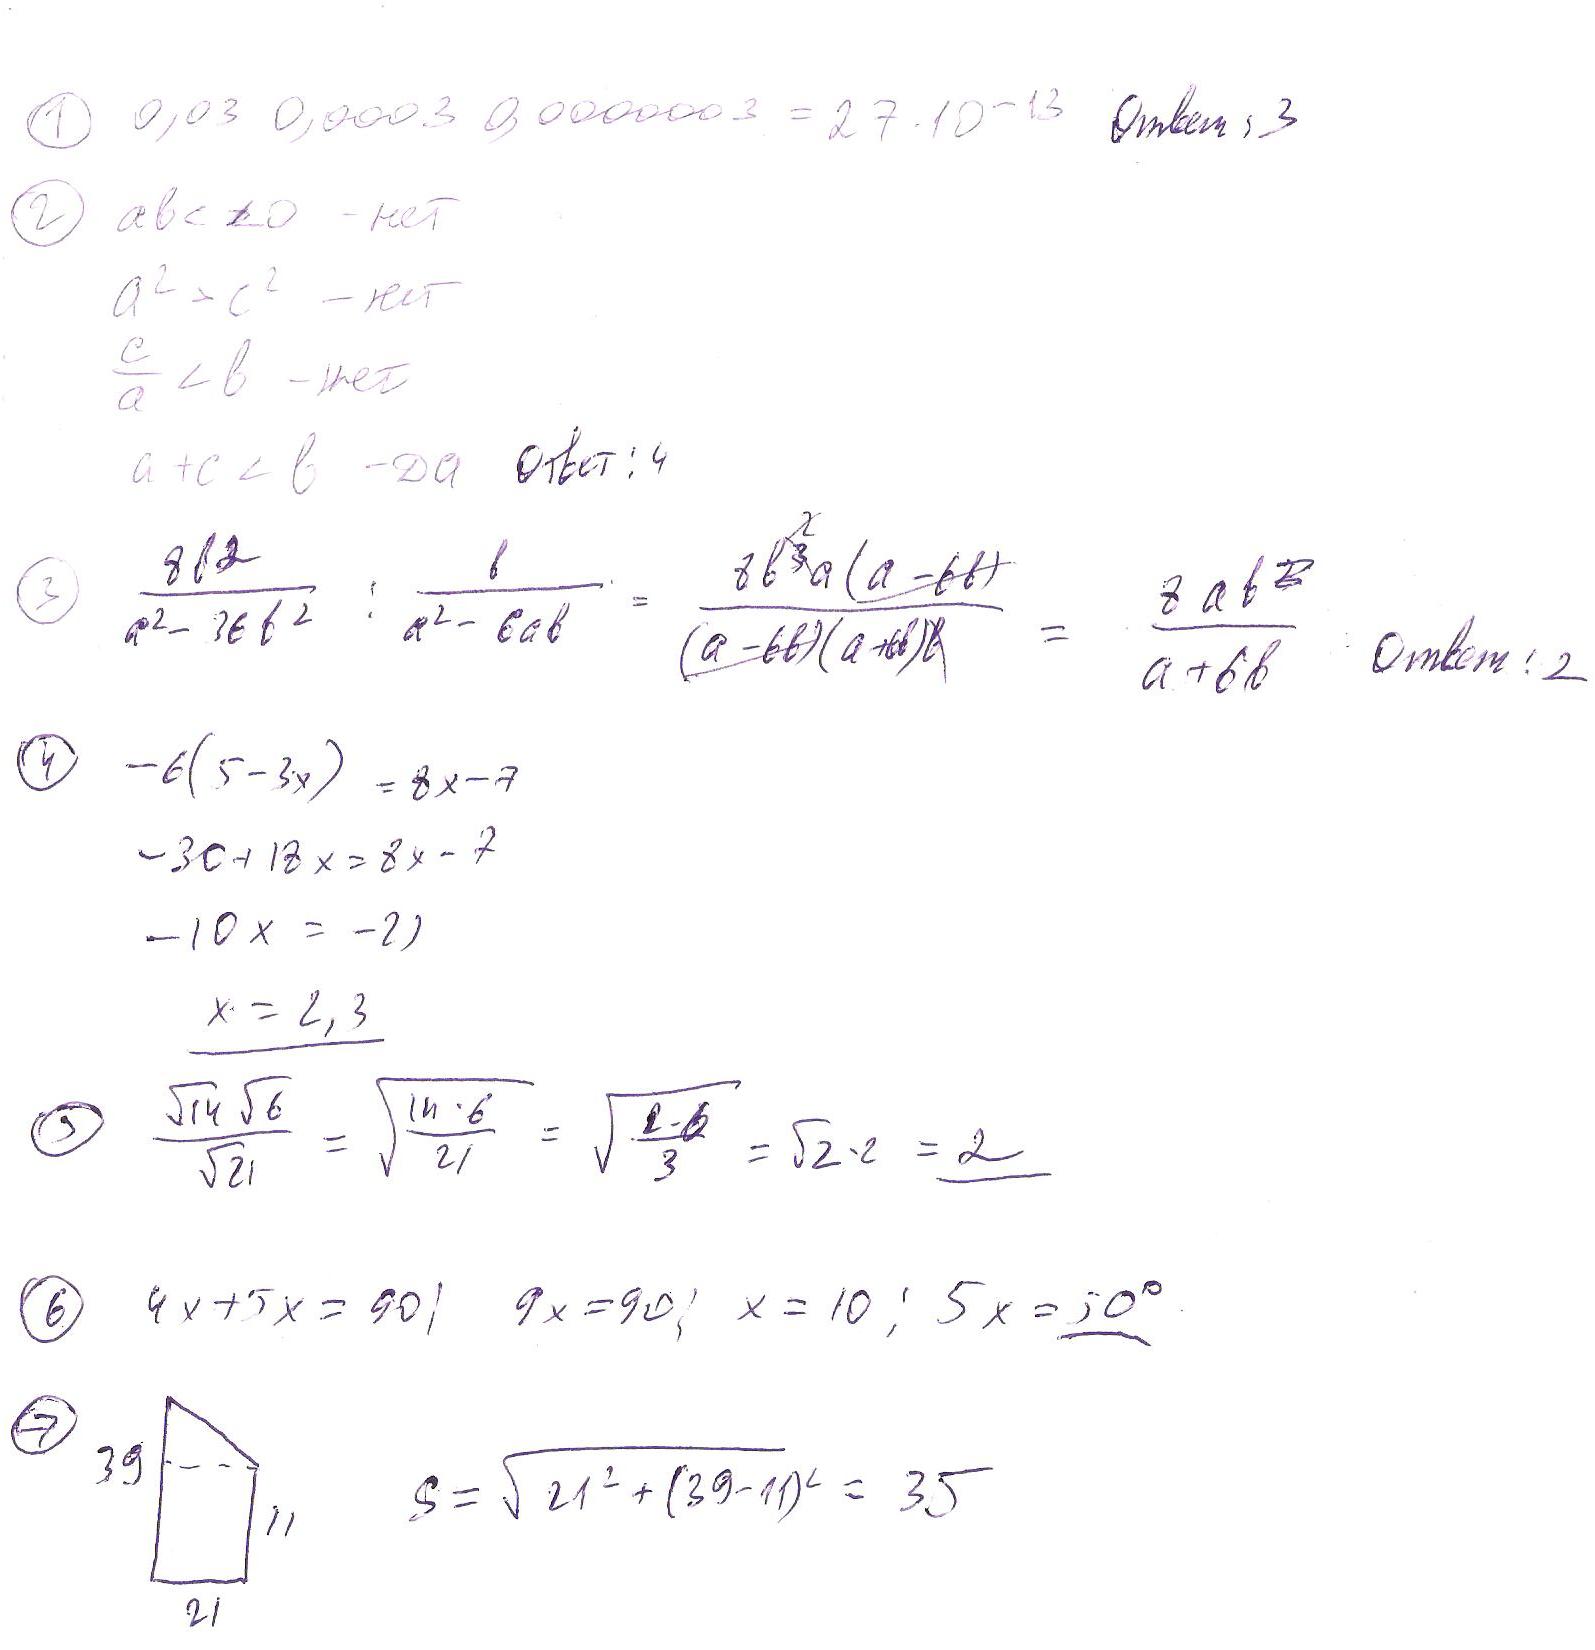 ① 0,03 0,0003 0,0000003 = 27·10⁻¹³ Ответ: 3
② ab < 0 - нет
a² > c² - нет
c/a < b - нет
a + c < b - да Ответ: 4
③ 8b²/(a² - 36b²) : b/(a² - 6ab) = 8b²a(a - 6b)/((a - 6b)(a + 6b)b) = 8ab/(a + 6b) Ответ: 2
④ -6(5 - 3x) = 8x - 7
-30 + 18x = 8x - 7
-10x = -2)
x = 2,3
⑤ √14 √6/√21 = √(14·6/21) = √(2·6/3) = √2·2 = 2
⑥ 4x + 5x = 90; 9x = 90; x = 10; 5x = 50°
⑦ 39
11
21
S = √(21² + (39 - 11)²) = 35